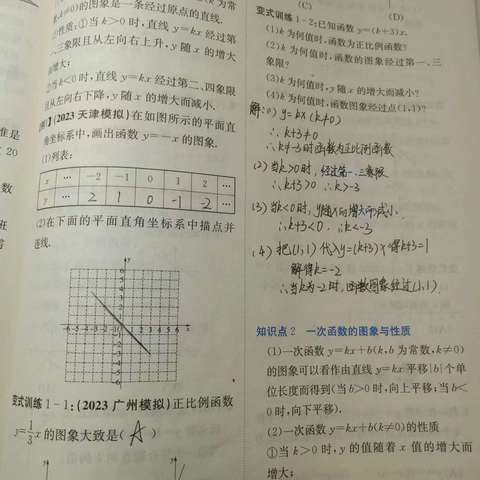 k≠0)的图象是一条经过原点的直线.
性质:①当 k>0 时,直线 y=kx 经过第
三象限且从左向右上升,y 随 x 的增大
而增大;
②当 k<0 时,直线 y=kx 经过第二、四象限
且从左向右下降,y 随 x 的增大而减小.
例1 (2023 天津模拟)在如图所示的平面直
角坐标系中,画出函数 y=-x 的图象.
(1)列表:
x … -2 -1 0 1 2 …
y … 2 1 0 -1 -2 …
(2)在下面的平面直角坐标系中描点并
连线.
变式训练 1-1:(2023 广州模拟)正比例函数
y=1/3x 的图象大致是( A )
(C) (D)
变式训练 1-2:已知函数 y=(k+3)x.
(1)k 为何值时,函数为正比例函数?
(2)k 为何值时,函数的图象经过第一、三
象限?
(3)k 为何值时,y 随 x 的增大而减小?
(4)k 为何值时,函数图象经过点(1,1)?
解:(1) y=kx (k≠0)
∴k+3≠0
k≠-3时函数为正比例函数
(2)当k>0时,经过第一.三象限
∴k+3>0 ∴k>-3
(3)当k<0时,y随x的增大而减小.
∴k+3<0 ∴k<-3
(4)把(1,1)代入y=(k+3)x得k+3=1
解得k=-2
∴当k为-2时,函数图象经过(1,1).
知识点 2 一次函数的图象与性质
(1)一次函数 y=kx+b(k,b 为常数,k≠0)
的图象可以看作由直线 y=kx 平移|b|个单
位长度而得到(当 b>0 时,向上平移;当 b<
0 时,向下平移).
(2)一次函数 y=kx+b(k≠0)的性质
①当 k>0 时,y 的值随着 x 值的增大而
增大;